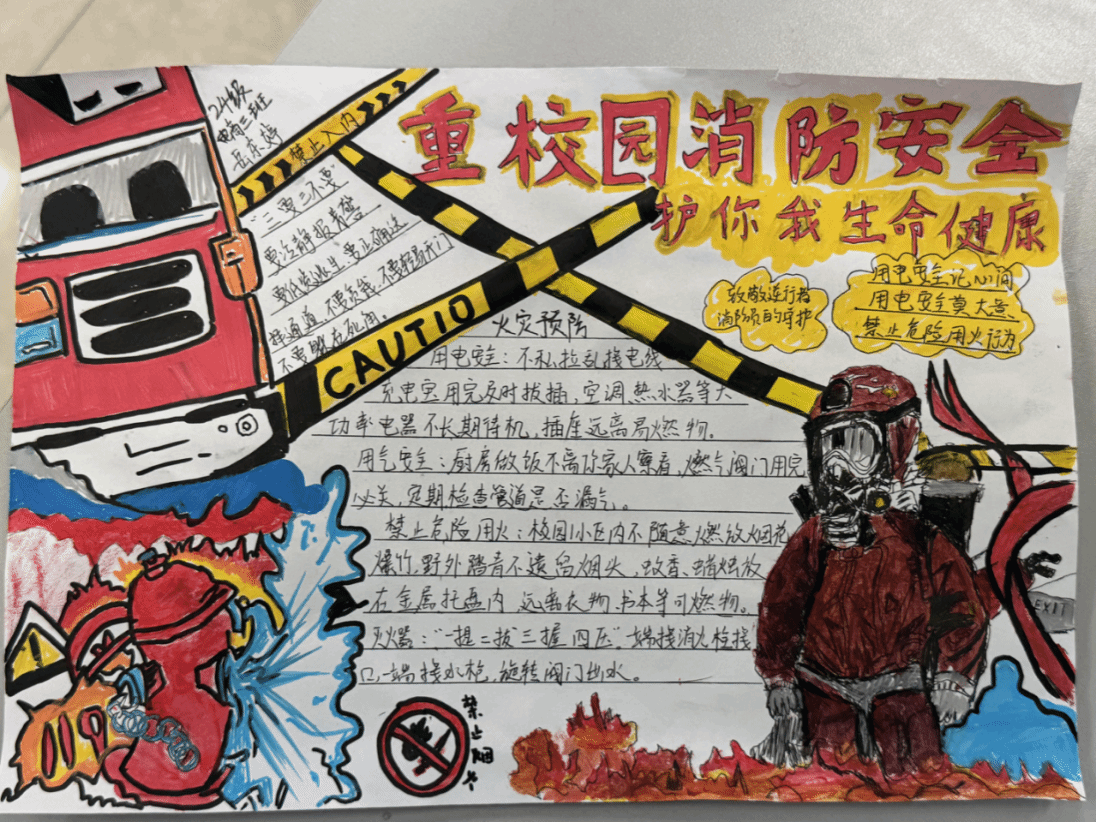 24级
电商三班
岳东婷
禁止入内
重校园消防安全
护你我生命健康
"三要三不要"
要冷静报房警
要低姿逃生要正确选
择通道 不要贪钱 不要轻易开门
不要躲在死角。
CAUTIO
致敬逆行者
消防员的守护
用电安全记心间
用电安全莫大意
禁止危险用火行为
火灾预防
用电安全：不私拉乱接电线
充电宝用完及时拔插，空调、热水器等大
功率电器不长期待机，插座远离易燃物。
用气安全：厨房做饭不离你家人察看，燃气阀门用完
必关，定期检查管道是否漏气。
禁止危险用火：校园小区内不随意燃放烟花
爆竹，野外踏青不遗留烟火，蚊香、蜡烛放
在金属托盘内 远离衣物、书本等可燃物。
灭火器："一提二拔三握四压"一端接消火栓接
口，一端接水枪，旋转阀门出水。
EXIT
119
禁止烟火